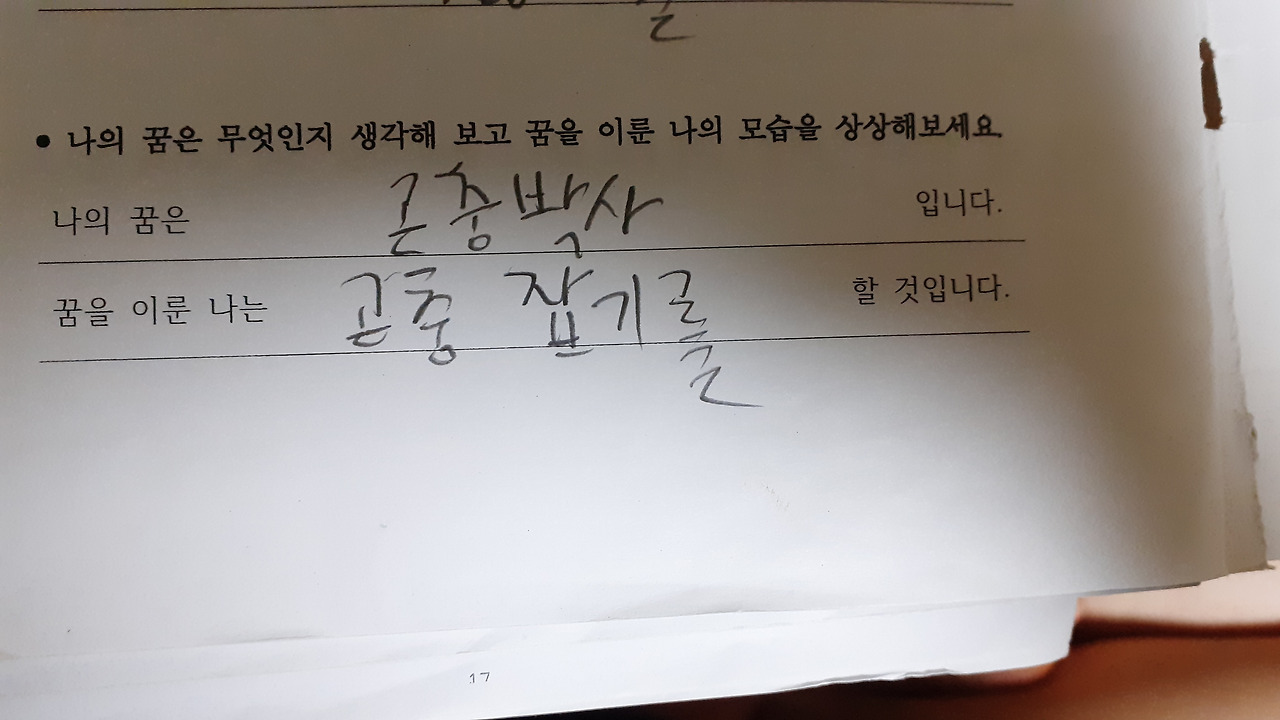 • 나의 꿈은 무엇인지 생각해 보고 꿈을 이룬 나의 모습을 상상해보세요.
나의 꿈은 곤충박사 입니다.
꿈을 이룬 나는 곤충 잡기를 할 것입니다.
17